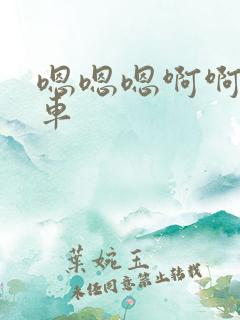 嗯嗯嗯啊啊
車
葉婉玉
未经同意禁止转载